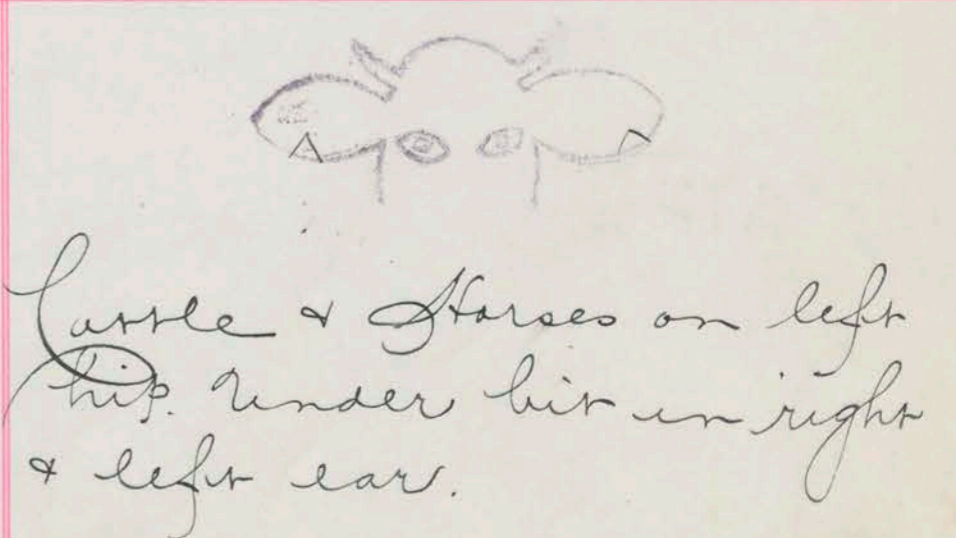 Cattle & Horses on left
hip. Under bit in right
& left ear.